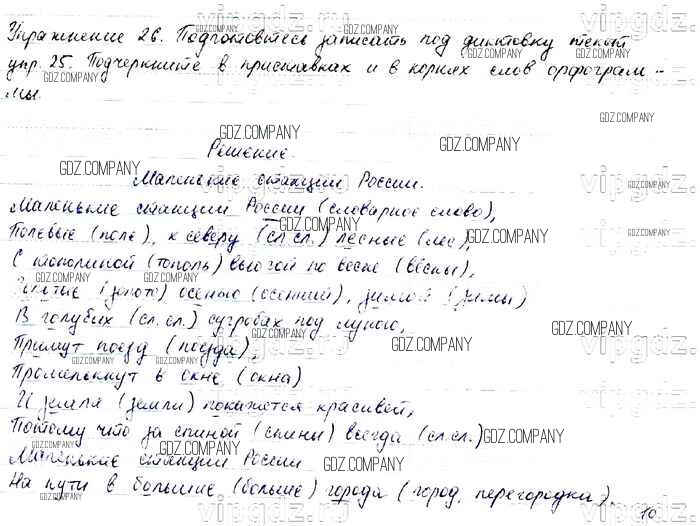 Упражнение 26. Подготовьтесь записать под диктовку текст
упр. 25. Подчеркните в приставках и в корнях слов орфограм-
мы.
Решение.
Маленькие станции России.
Маленькие станции России (словарное слово),
Полевые (поле), к северу (сл.сл.) лесные (лес),
С тополиной (тополь) вьюгой по весне (вёсны),
Золотые (золото) осенью (осенний), зимой (зимы)
В голубых (сл.сл.) сугробах под луною,
Примут поезд (поезда),
Промелькнут в окне (окна)
И земля (земли) покажется красивей,
Потому что за спиной (спины) всегда (сл.сл.)
Маленькие станции России
На пути в большие (больше) города (город, перегородка).
10
GDZ.COMPANY
vipgdz.ru